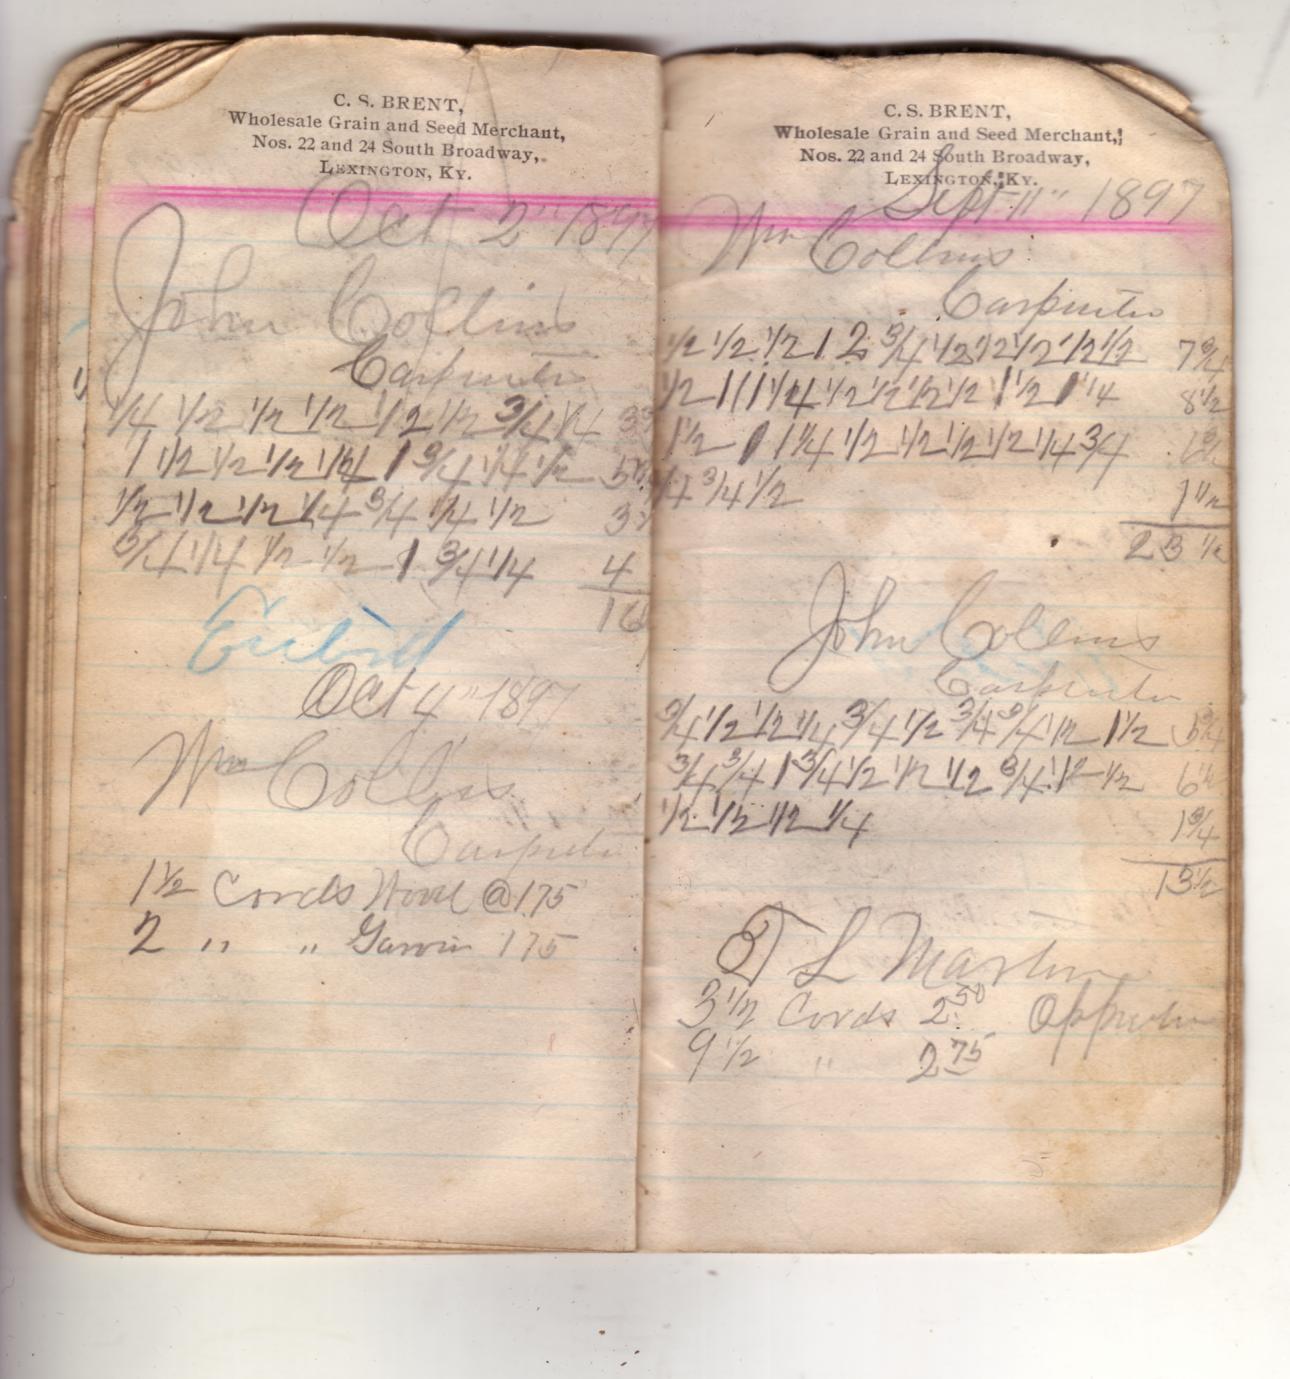 C. S. BRENT,
Wholesale Grain and Seed Merchant,
Nos. 22 and 24 South Broadway,
LEXINGTON, KY.
Oct 2" 1897
John Collins
Carpenter
1/4 1/2 1/2 1/2 1/2 1/2 3/4 1/4
1 1/2 1/2 1/2 1 3/4 1/4 1/2
1/2 1/2 1/2 1/4 3/4 1/4 1/2
3/4 1/4 1/2 1/2 1 3/4 1/4 4
16
Oct 4" 1897
Wm Collins
Carpenter
1 1/2 Cords Wood @ 175
2 " " 175
C. S. BRENT,
Wholesale Grain and Seed Merchant,
Nos. 22 and 24 South Broadway,
LEXINGTON, KY.
Sept 11" 1897
Wm Collins
Carpenter
1/2 1/2 1/2 1 2 3/4 1/2 1/2 1/2 1/2 1/2 7 3/4
1/2 1 1 1 1/4 1/2 1/2 1/2 1/2 1 1/2 1 1/4 8 1/2
1 1/2 1 1 1/4 1/2 1/2 1/2 1/2 1/4 3/4
3/4 1/2 1 1/2
23 1/2
John Collins
Carpenter
3/4 1/2 1/2 1/4 3/4 1/2 3/4 3/4 1/2 1 1/2
3/4 3/4 1 3/4 1/2 1/2 1/2 3/4 1/2 1/2 6
1/2 1/2 1/2 1/4 1 3/4
13 1/2
L Martin
3 1/2 Cords 2 50
9 1/2 " 2 75